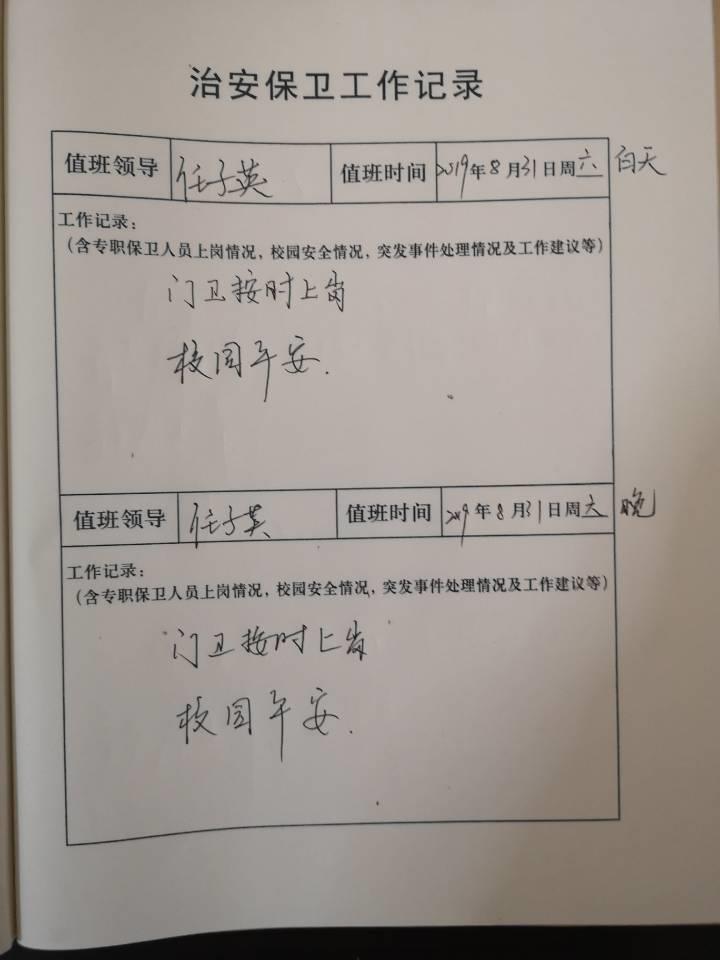 治安保卫工作记录
值班领导 任子英 值班时间 2019年8月31日周六 白天
工作记录：
（含专职保卫人员上岗情况，校园安全情况，突发事件处理情况及工作建议等）
门卫按时上岗
校园平安.
值班领导 任子英 值班时间 2019年8月31日周六 晚
工作记录：
（含专职保卫人员上岗情况，校园安全情况，突发事件处理情况及工作建议等）
门卫按时上岗
校园平安.